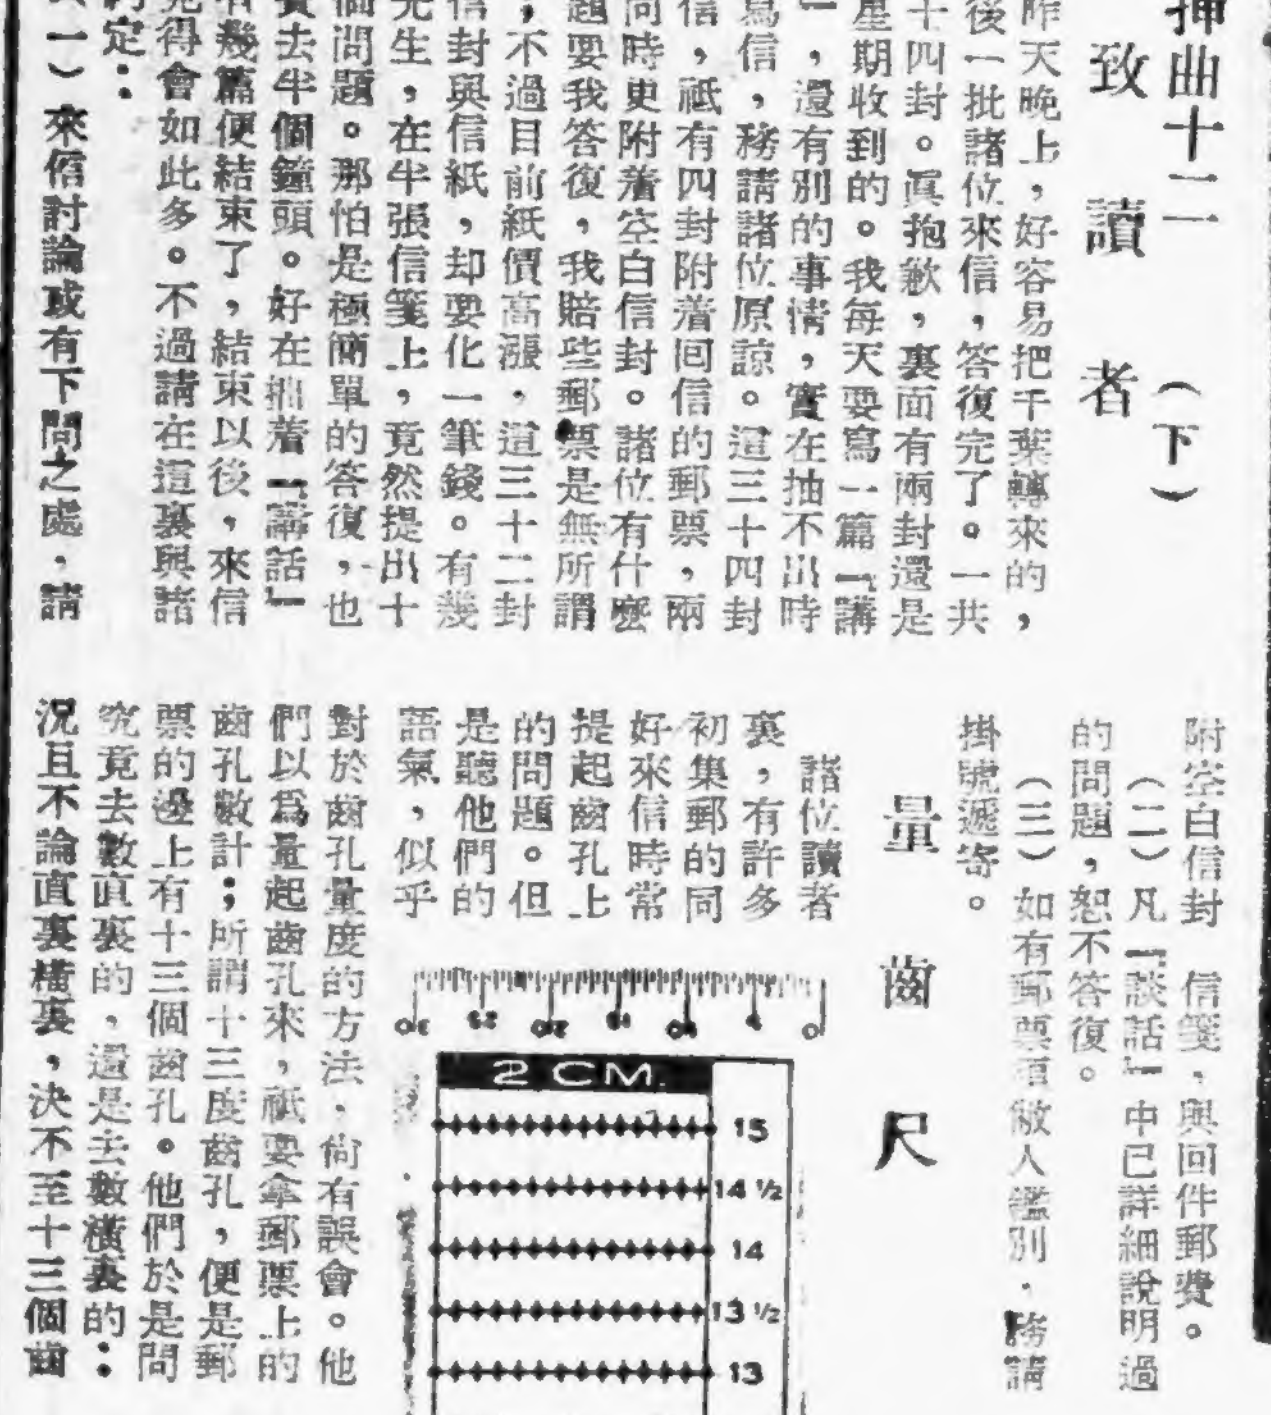 插曲十二　（下）
致讀者
昨天晚上，好容易把千葉轉來的，
後一批諸位來信，答復完了。一共
十四封。眞抱歉，裏面有兩封還是
星期收到的。我每天要寫一篇「講
」，還有別的事情，實在抽不出時
寫信，務請諸位原諒。這三十四封
信，祇有四封附着回信的郵票，兩
同時更附着空白信封。諸位有什麼
題要我答復，我賠些郵票是無所謂
，不過目前紙價高漲，這三十二封
信封與信紙，却要化一筆錢。有幾
先生，在半張信箋上，竟然提出十
個問題。那怕是極簡單的答復，也
費去半個鐘頭。好在指着「講話」
有幾篇便結束了，結束以後，來信
見得會如此多。不過請在這裏與諸
約定：
（一）來信討論或有下問之處，請
附空白信封　信箋，與回件郵費。
（二）凡「談話」中已詳細說明過
的問題，恕不答復。
（三）如有郵票須敝人鑑別，務請
掛號遞寄。
量齒尺
諸位讀者
裏，有許多
初集郵的同
好來信時常
提起齒孔上
的問題。但
是聽他們的
語氣，似乎
對於齒孔量度的方法，尙有誤會。他
們以爲量起齒孔來，祇要拿郵票上的
齒孔數計；所謂十三度齒孔，便是郵
票的邊上有十三個齒孔。他們於是問
究竟去數直裏的，還是去數橫裏的：
況且不論直裏橫裏，決不至十三個齒
30 25 20 15 10 5 0
2 CM.
15
14 ½
14
13 ½
13